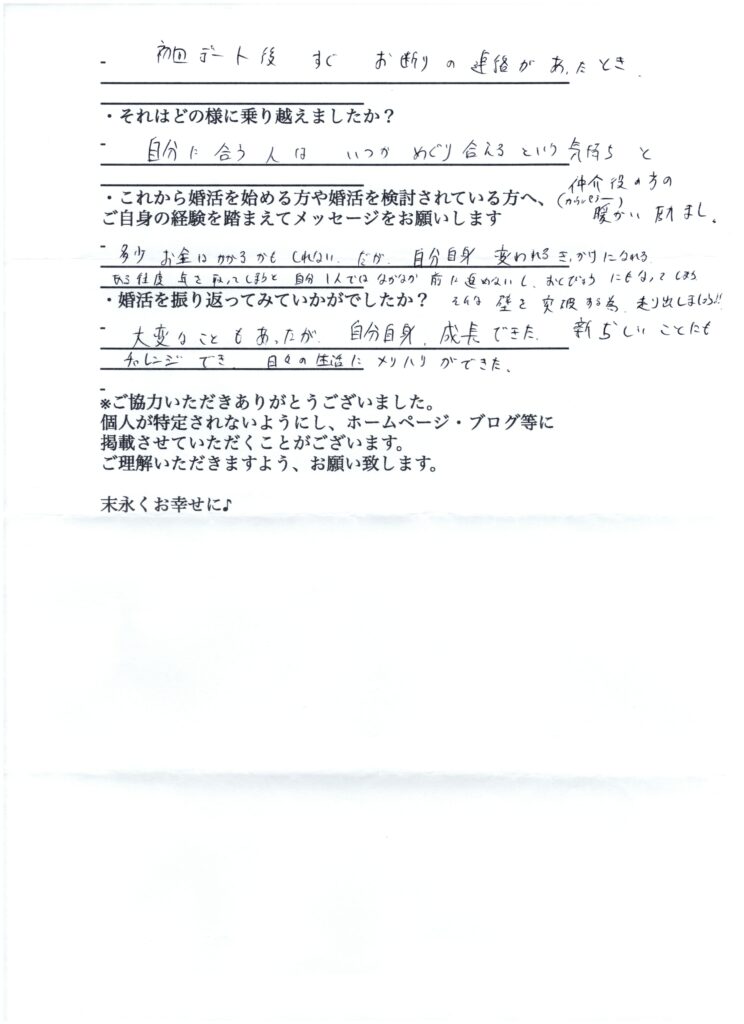 初回デート後 すぐ お断りの連絡があったとき.
・それはどの様に乗り越えましたか？
自分に合う人は いつか めぐり合えるという気持ちと
仲介役の方の
(カウンセラー)
暖かい励まし。
・これから婚活を始める方や婚活を検討されている方へ、
ご自身の経験を踏まえてメッセージをお願いします
多少 お金はかかるかもしれない. だが. 自分自身 変われるきっかけになれる
ある程度 歳を取ってしまうと 自分1人ではなかなか 前に進めないし、おくびょう にもなってしまう
・婚活を振り返ってみていかがでしたか？ そんな 壁を 突破する為. 走り出しましょう!!
大変なこともあったが. 自分自身. 成長できた. 新らしいことにも
チャレンジでき. 日々の生活に メリハリができた.
※ご協力いただきありがとうございました。
個人が特定されないようにし、ホームページ・ブログ等に
掲載させていただくことがございます。
ご理解いただきますよう、お願い致します。
末永くお幸せに♪